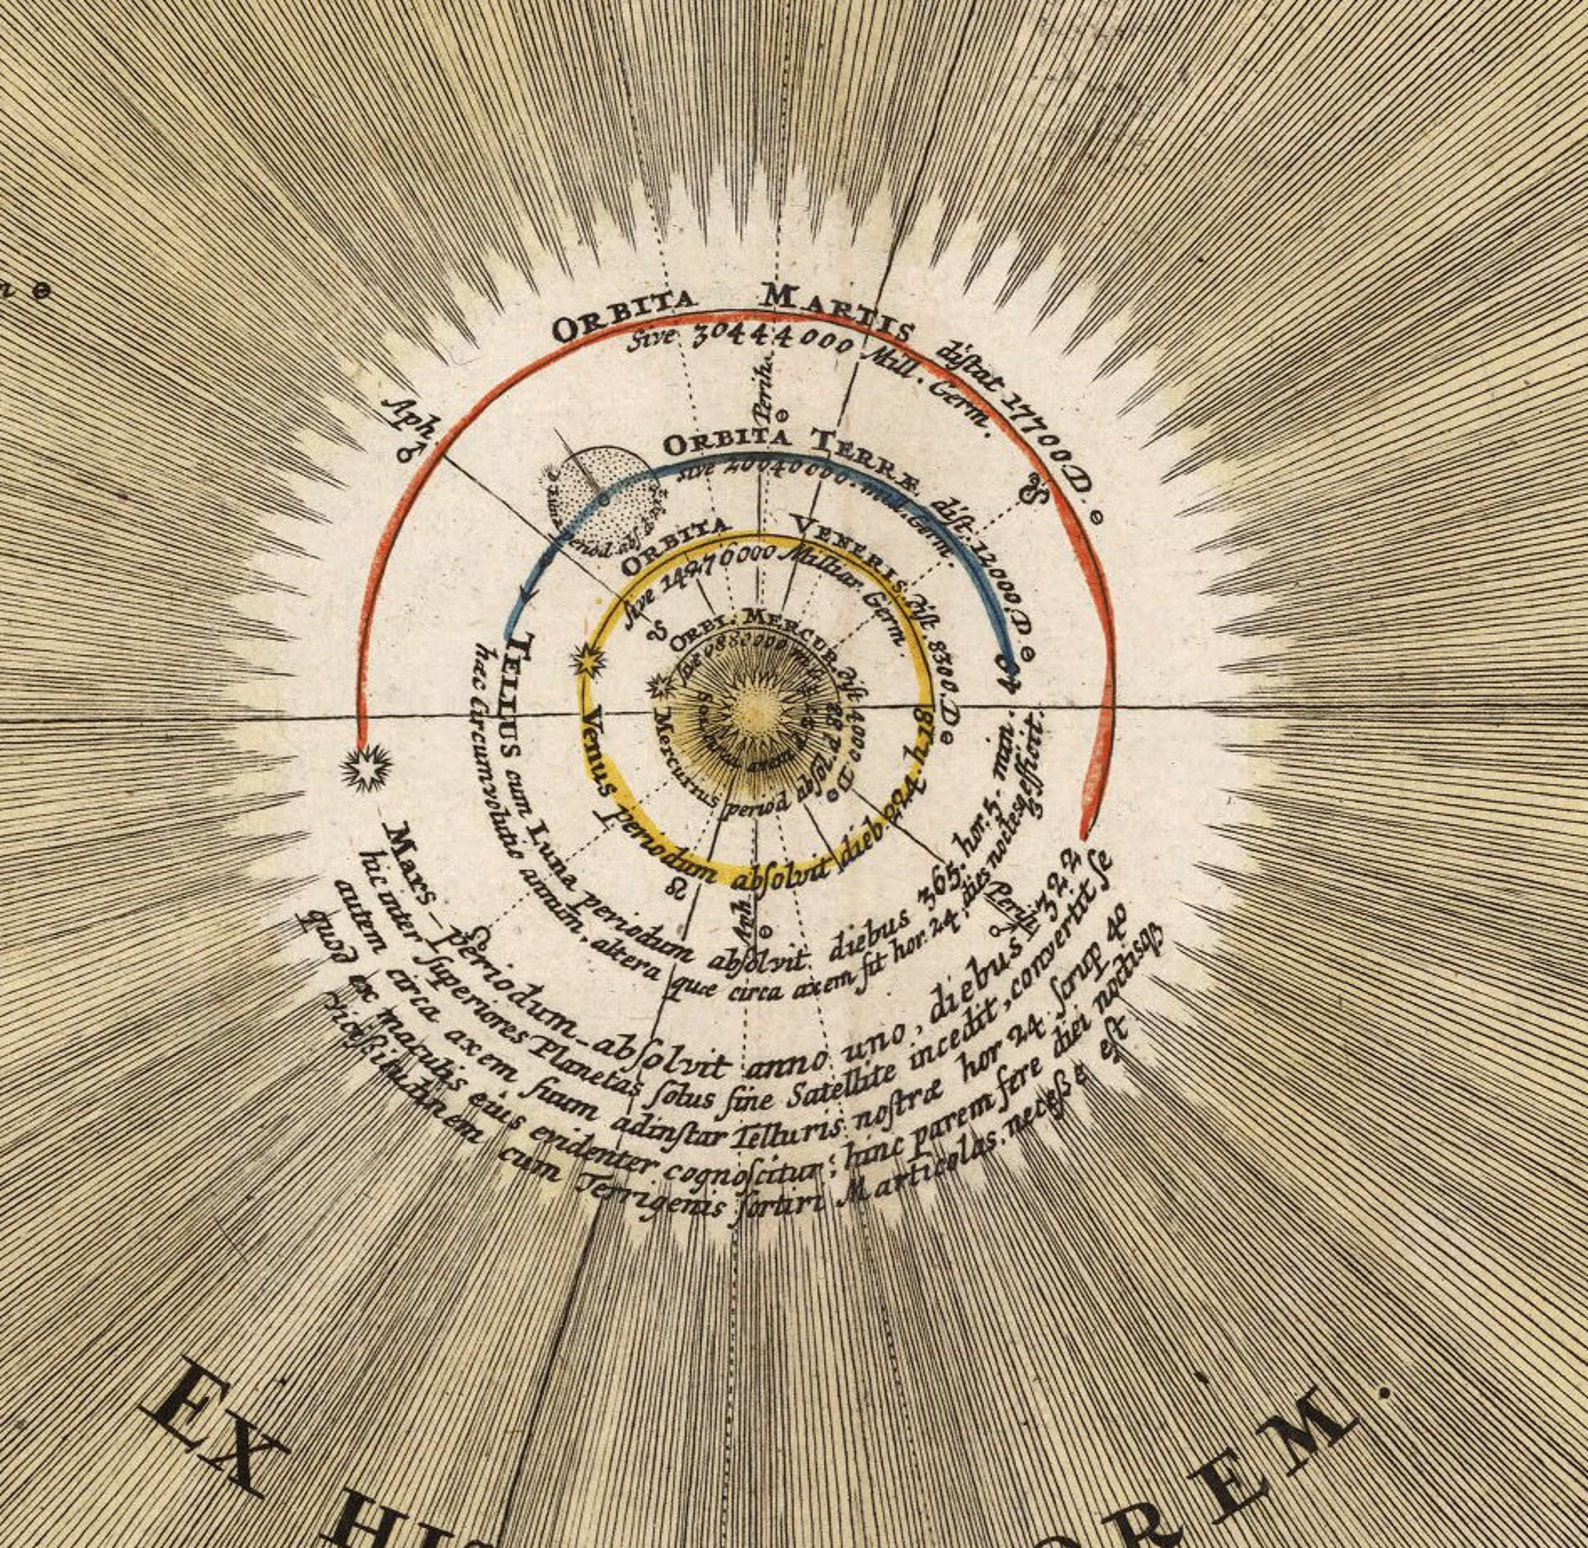 ORBITA MARTIS distat 17700 D. ⊖
sive 30444000 Mill. Germ.
Aph.
♂
Perih.
⊖
ORBITA TERRÆ dist. 12000. D ⊖
sive 20640000. mill. Germ.
ORBITA VENERIS. dist. 8300. D ⊖
sive 14276000 Milliar. Germ.
ORBI. MERCUR. dist 4000 D ⊖
Mercurius period absol.
Venus periodum absolvit dieb. 224. h. 18
☊
Aph
⊖
Perih.
♂
TELLUS cum Luna periodum absolvit. diebus 365. hor. 5. min. 49
hæc Circumvolutio annum, altera quæ circa axem fit hor. 24, dies noctesq efficit.
Mars periodum absolvit anno uno, diebus 322
hic inter superiores Planetas solus sine Satellite incedit, convertit se
autem circa axem suum adinstar Telluris nostræ hor 24 scrup 40
quod ex maculis eius evidenter cognoscitur; hinc parem fere diei noctisqꝫ
vicissitudinem cum Terrigenis sortiri Marticolas. neceße est
EX